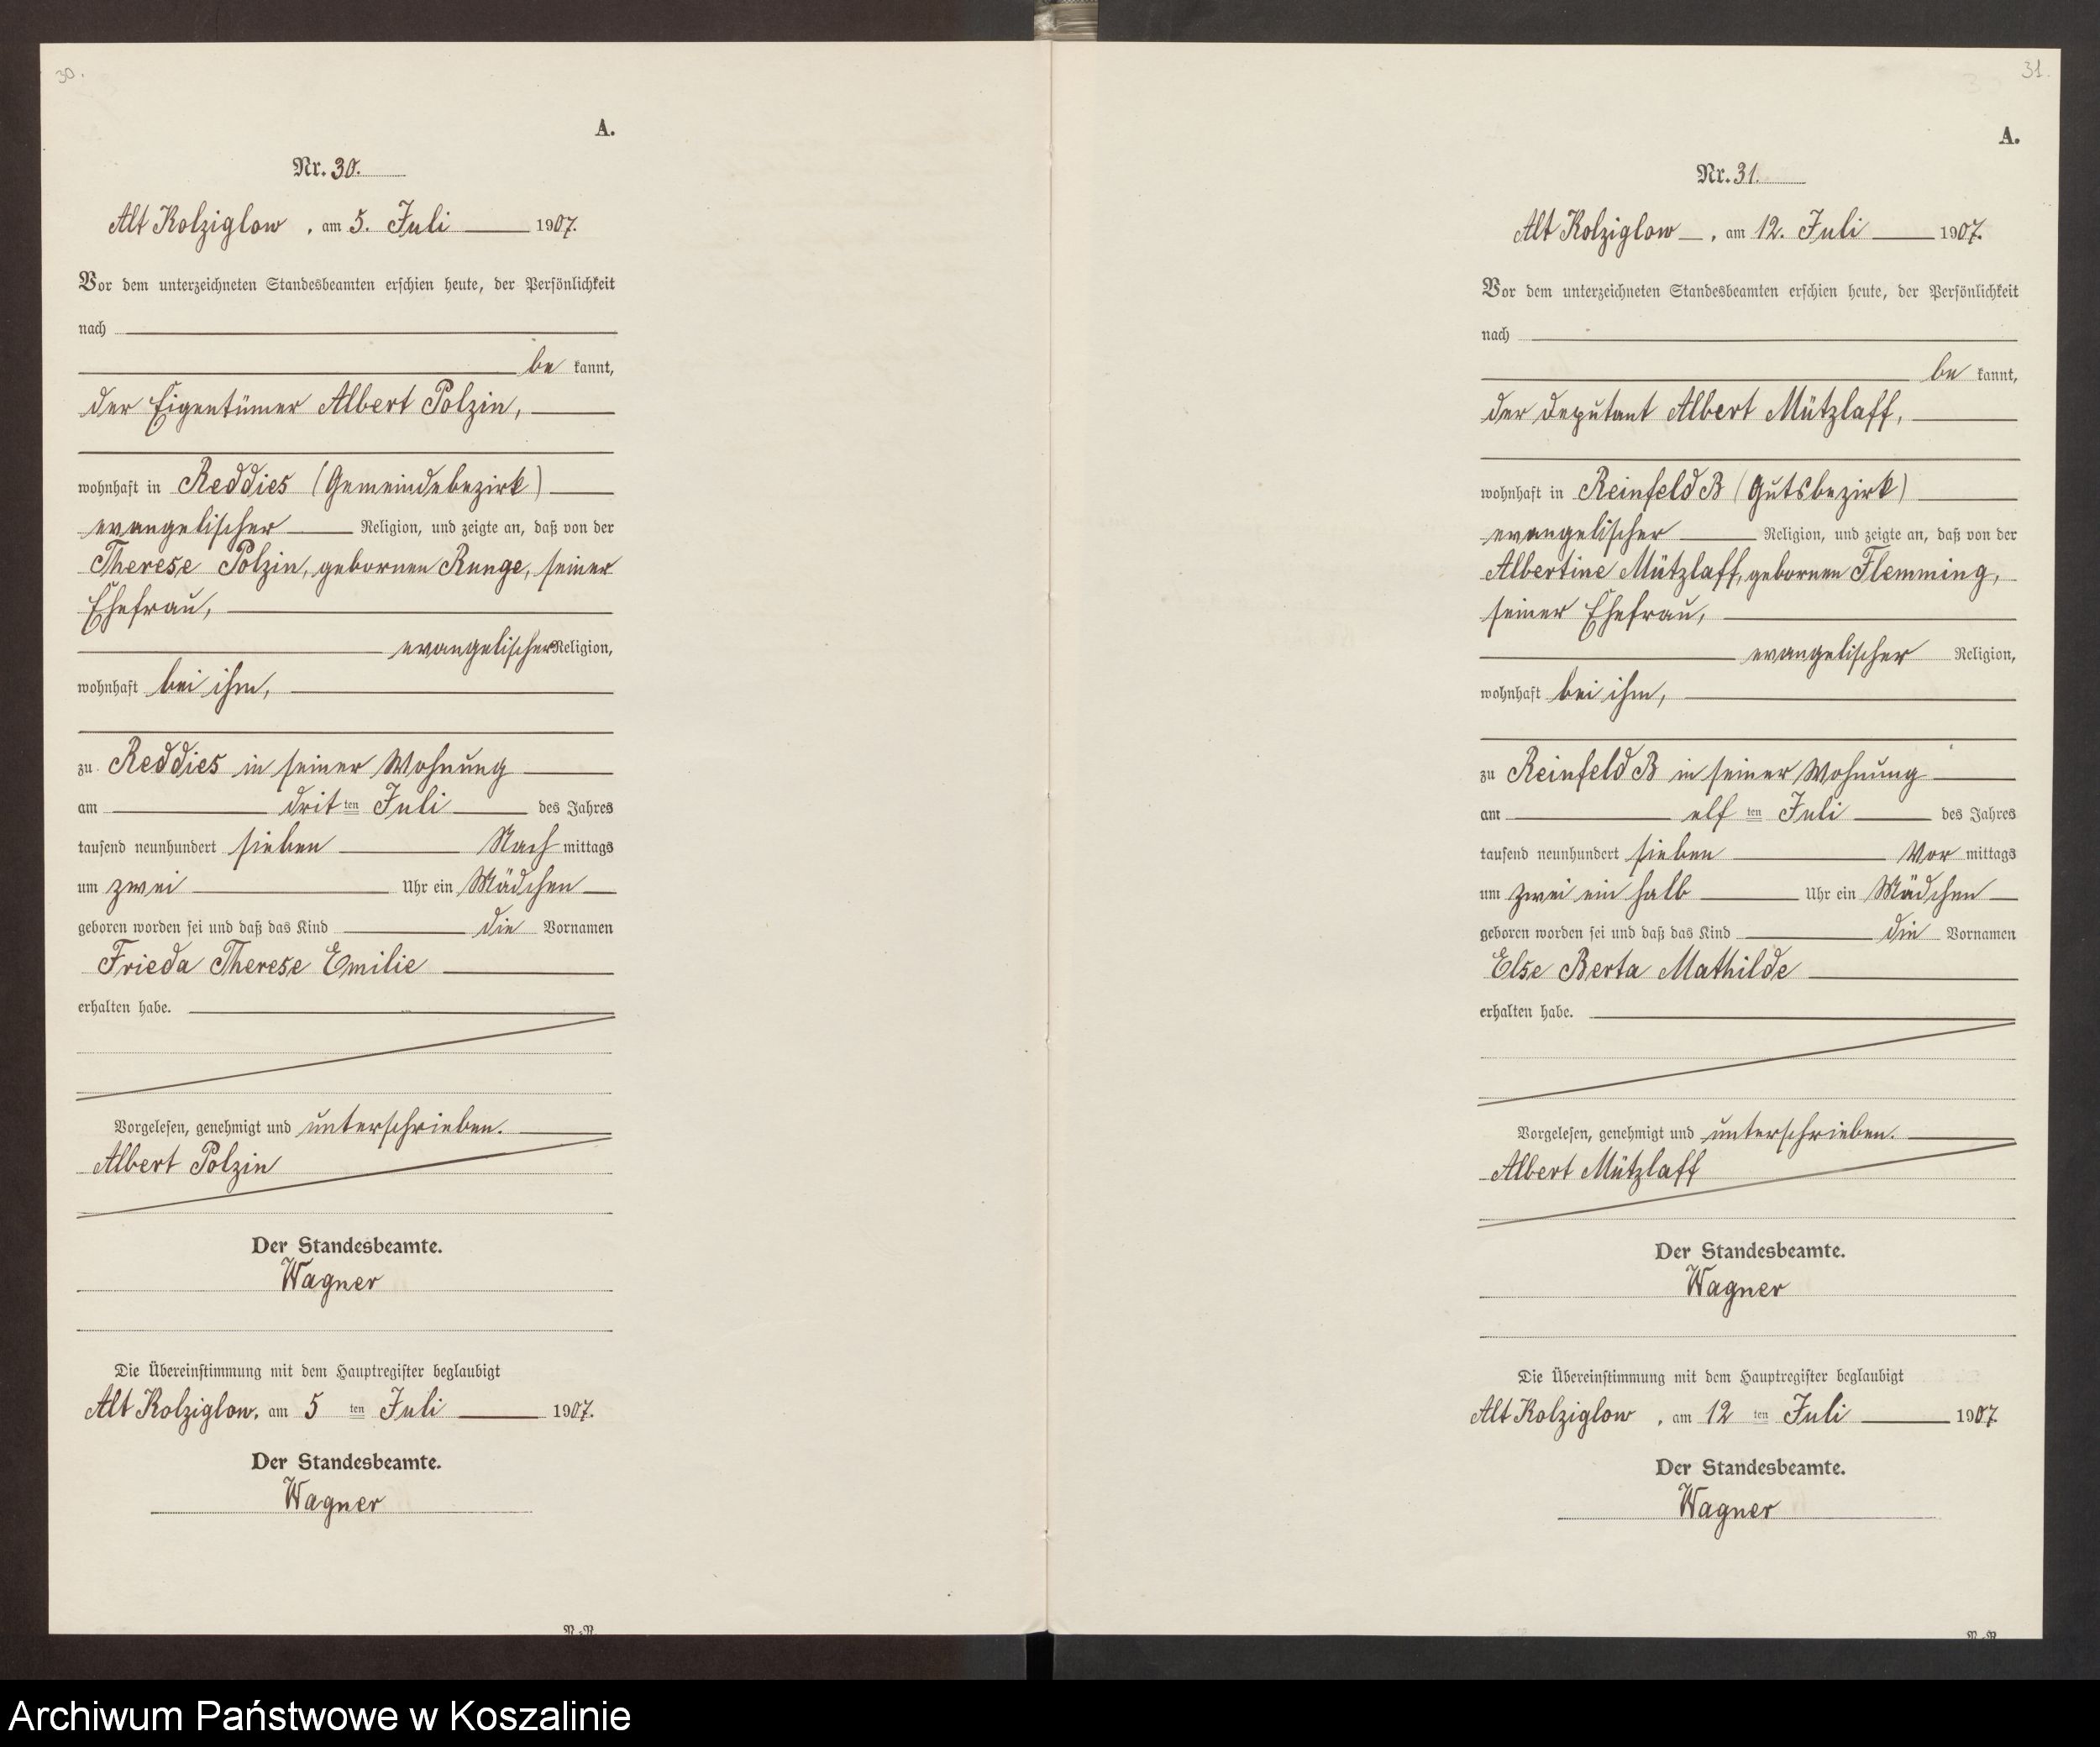 30.
A.
Nr. 30.
Alt Kolziglow, am 5. Juli 1907.
Vor dem unterzeichneten Standesbeamten erschien heute, der Persönlichkeit
nach
be kannt,
der Eigentümer Albert Polzin,
wohnhaft in Reddies (Gemeindebezirk)
evangelischer Religion, und zeigte an, daß von der
Therese Polzin, gebornen Runge, seiner
Ehefrau,
evangelischer Religion,
wohnhaft bei ihm,
zu Reddies in seiner Wohnung
am drit ten Juli des Jahres
tausend neunhundert sieben Nach mittags
um zwei Uhr ein Mädchen
geboren worden sei und daß das Kind die Vornamen
Frieda Therese Emilie
erhalten habe.
Vorgelesen, genehmigt und unterschrieben.
Albert Polzin
Der Standesbeamte.
Wagner
Die Übereinstimmung mit dem Hauptregister beglaubigt
Alt Kolziglow, am 5 ten Juli 1907.
Der Standesbeamte.
Wagner
31.
A.
Nr. 31.
Alt Kolziglow, am 12. Juli 1907.
Vor dem unterzeichneten Standesbeamten erschien heute, der Persönlichkeit
nach
be kannt,
der Deputant Albert Mützlaff,
wohnhaft in Reinfeld B (Gutsbezirk)
evangelischer Religion, und zeigte an, daß von der
Albertine Mützlaff, gebornen Flemming,
seiner Ehefrau,
evangelischer Religion,
wohnhaft bei ihm,
zu Reinfeld B in seiner Wohnung
am elf ten Juli des Jahres
tausend neunhundert sieben Vor mittags
um zwei ein halb Uhr ein Mädchen
geboren worden sei und daß das Kind die Vornamen
Else Berta Mathilde
erhalten habe.
Vorgelesen, genehmigt und unterschrieben.
Albert Mützlaff
Der Standesbeamte.
Wagner
Die Übereinstimmung mit dem Hauptregister beglaubigt
Alt Kolziglow, am 12 ten Juli 1907
Der Standesbeamte.
Wagner
Archiwum Państwowe w Koszalinie